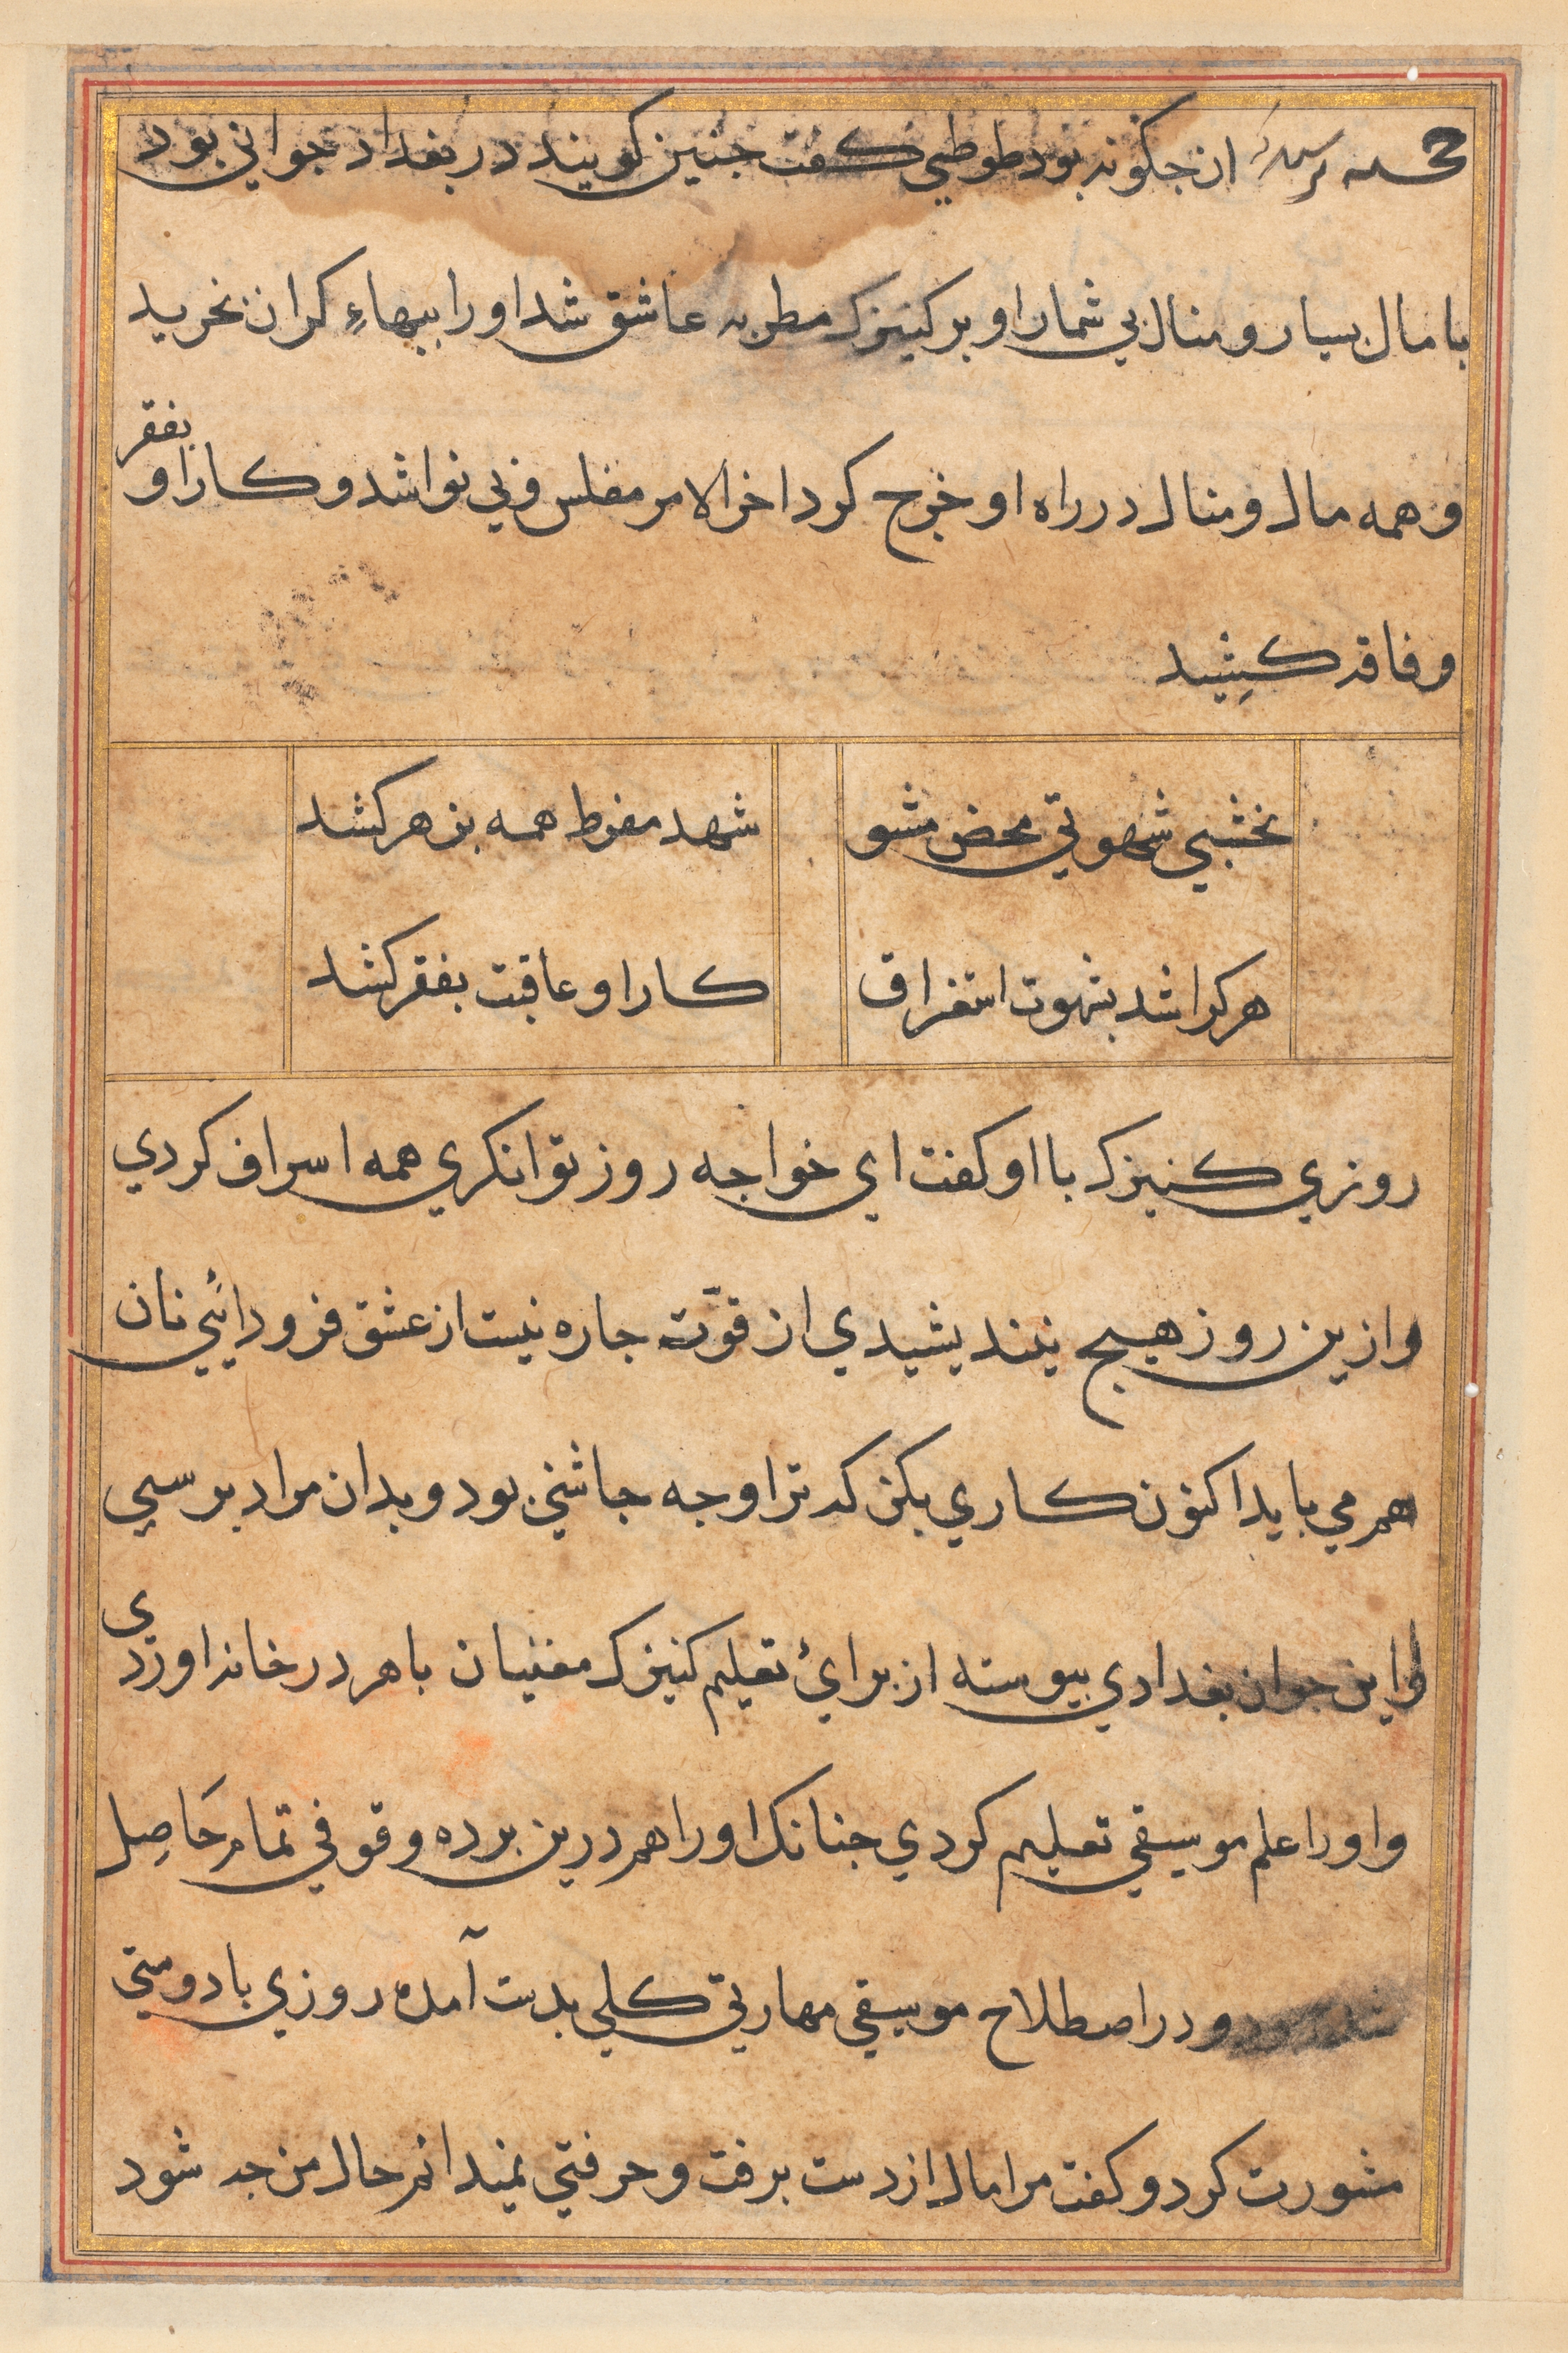 خجسته پرسید ان جکونه بود طوطی کفت جنین کویند در بغداد جوانی بود
با مال بسیار و منال بی شمار او بر کنیزک مطربه عاشق شد او را ببهاءِ کران بخرید
و همه مال و منال در راه او خرج کرد اخر الامر مفلس و بی نوا شد و کار او بفقر
و فاقه کشید
نخشبی شهوتی محض مشو
شهد مفرط همه بزهر کشد
هر کرا شد بشهوت استغراق
کار او عاقبت بفقر کشد
روزی کنیزک با او کفت ای خواجه روز توانکری همه اسراف کردی
و ازین روز هیج نیندیشیدی از قوّت جاره نیست از عشق فرود ائی نان
هم می باید اکنون کاری بکن که ترا وجه جاشنی بود و بدان مراد برسی
و این جوان بغدادی بیوسته از برائ تعلیم کنیزک مغنیان باهر در خانه اوردی
و او را علم موسیقی تعلیم کردی جنانک او را هم درین برده وقوفی تمام حَاصِل
شده بود و در اصطلاح موسیقی مهارتی کلی بدست آمده روزی با دوستی
مشورت کرد و کفت مرا مال از دست برفت و حرفتی نمیدانم حال من جه شود